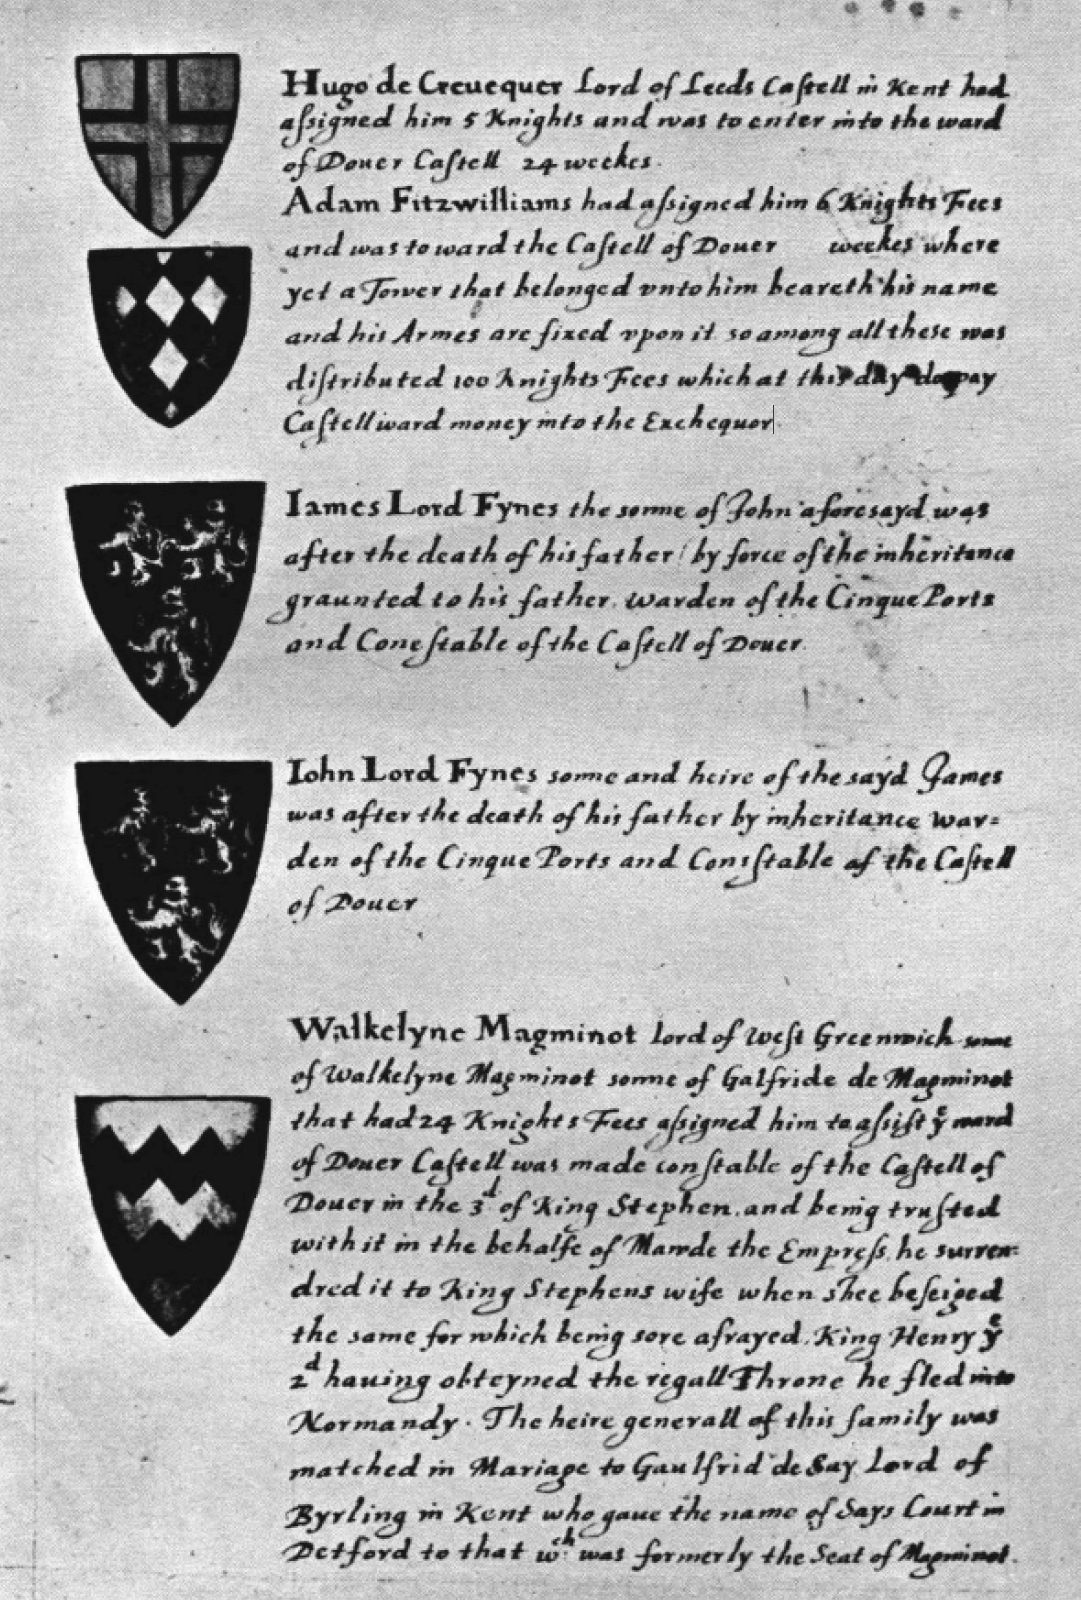 Hugo de Creuequer Lord of Leeds Castell in Kent had
assigned him 5 Knights and was to enter into the ward
of Douer Castell 24 weekes.
Adam Fitzwilliams had assigned him 6 Knights Fees
and was to ward the Castell of Douer weekes where
yet a Tower that belonged vnto him beareth his name
and his Armes are fixed vpon it. so among all these was
distributed 100 Knights Fees which at this day do pay
Castellward money into the Exchequor
Iames Lord Fynes the sonne of John aforesayd was
after the death of his father (by force of the inheritance
graunted to his father. Warden of the Cinque Ports
and Conestable of the Castell of Douer.
Iohn Lord Fynes sonne and heire of the sayd James
was after the death of his father by inheritance War=
den of the Cinque Ports and Consstable of the Castell
of Douer
Walkelyne Magminot lord of West Greenwich sonne
of Walkelyne Magminot sonne of Galfride de Magminot
that had 24 Knights Fees assigned him to assist yͤ ward
of Douer Castell was made constable of the Castell of
Douer in the 3ᵈ of King Stephen. and being trusted
with it in the behalfe of Mawde the Empress. he surren=
dred it to King Stephens wife when shee beseiged
the same for which being sore afrayed. King Henry yͤ
2ᵈ hauing obteyned the regall Throne he fled into
Normandy. The heire generall of this family was
matched in Mariage to Gaulfrid de Say Lord of
Byrling in Kent who gaue the name of Says Court in
Detford to that wᶜʰ was formerly the Seat of Magminot.